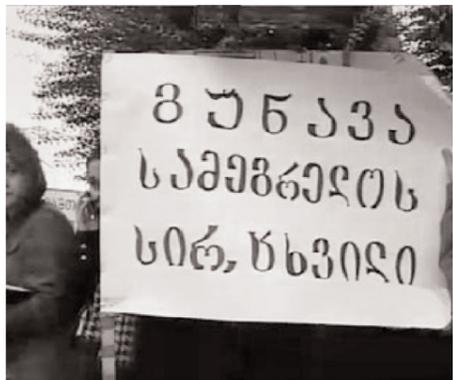 გუნავა
სამეგრელოს
სირ,ცხვილი